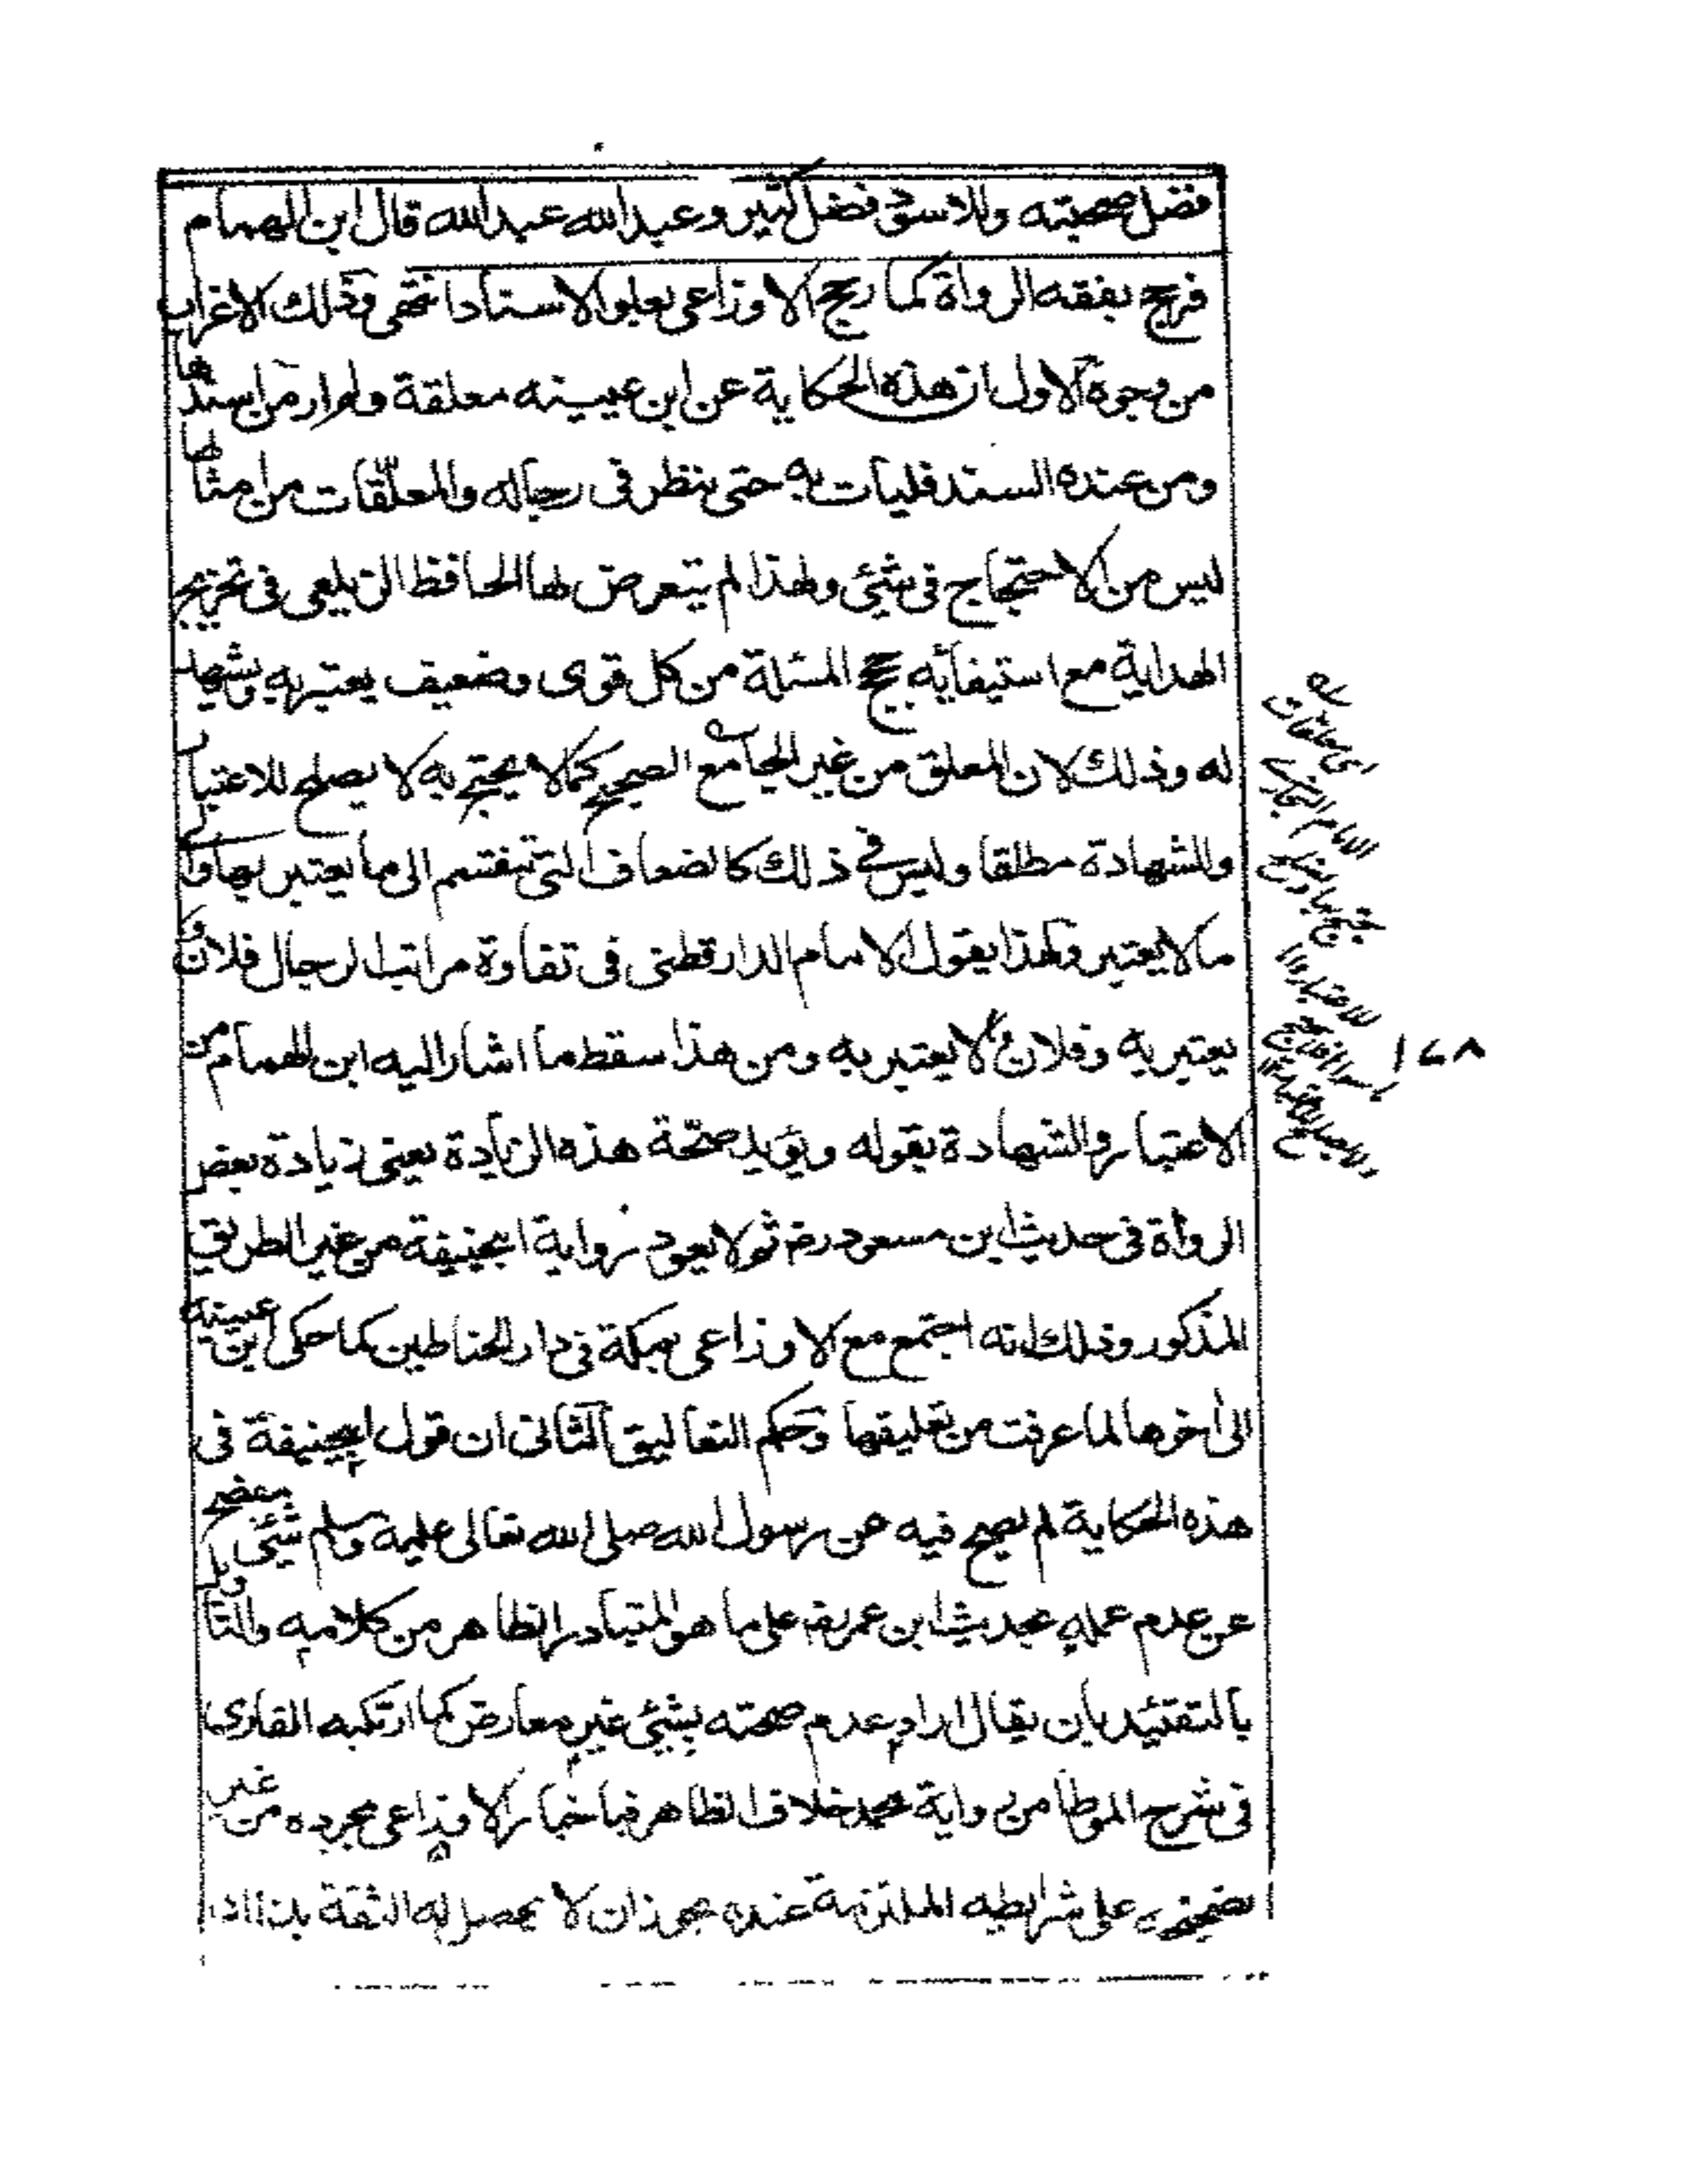 فضل صحبته وللاسود فضل كثير وعبدالله عبدالله قال ابن الهمام
فرجح بفقه الرواة كما رجح الاوزاعى بعلو الاسناد انتهى وذلك الاغراب
من وجوه الاول ان هذه الحكاية عن ابن عيينه معلقة ولم ار من اسندها
ومن عنده السند فليات به حتى ينظر فى رجاله والمعلقات من امثالها
ليس من الاحتجاج فى شيئ ولهذا لم يتعرض لها الحافظ الزيلعى فى تخريج
الهداية مع استيفائه حجج المسئلة من كل قوى وضعيف يعتبر به ويشهد
له وذلك لان المعلق من غير الجامع الصحيح كما لا يحتج به لا يصلح للاعتبار
وللشهادة مطلقا وليس فى ذلك كالضعاف التى تنقسم الى ما يعتبر بها والى
ما لا يعتبر ولهذا يقول الامام الدارقطنى فى تفاوة مراتب الرجال فلان
يعتبر به وفلان لا يعتبر به ومن هذا سقط ما اشار اليه ابن الهمام من
الاعتبار والشهادة بقوله ويؤيد صحة هذه الزيادة يعنى زيادة بعض
الرواة فى حديث ابن مسعود رض ثم لا يعود رواية ابيحنيفة من غير الطريق
المذكور وذلك انه اجتمع مع الاوزاعى بمكة فى دار الحناطين كما حكى ابن عيينه
الى اخرها لما عرفت من تعليقها وحكم التعاليق الثانى ان قول ابيحنيفة فى
هذه الحكاية لم يصح فيه عن رسول الله صلى الله تعالى عليه وسلم شيئ يفصح
عن عدم علمه بحديث ابن عمر رض على ما هو المتبادر الظاهر من كلامه والتاويل
بالتقئيد بان يقال اراد عدم صحته بشيئ غير معارض كما ارتكبه القارى
فى شرح الموطا من رواية محمد خلاف الظاهر فباخبار الاوزاعى بمجرده من غير
على شرايطه الملتزمة عنده يجوز ان لا يحصل له الثقة
اى معلقات
الامام البخارى
١٤٨